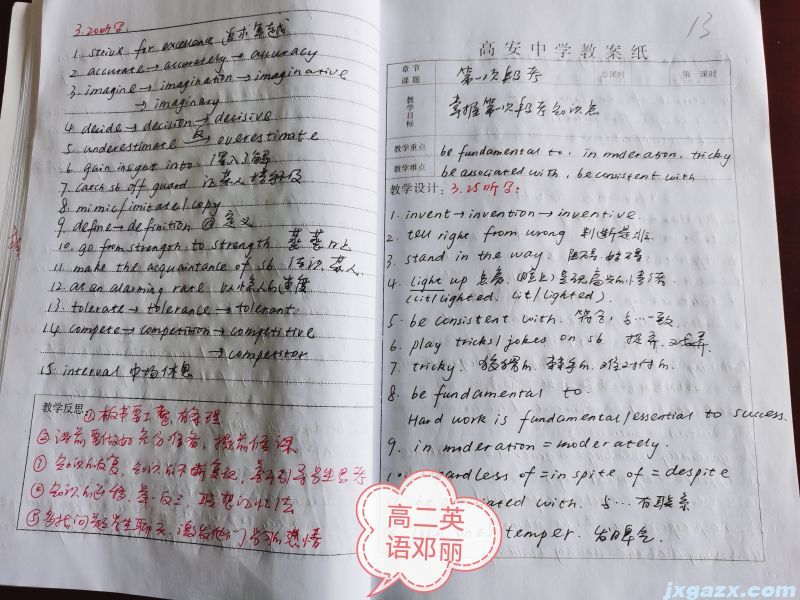 3.20听写:
1. strive for excellence 追求卓越
2. accurate → accurately → accuracy
3. imagine → imagination → imaginative
→ imaginary
4. decide → decision → decisive
5. underestimate 反→ overestimate
6. gain insight into 深入了解
7. catch sb off guard 让某人措手不及
8. mimic/imitate/copy
9. define → definition 定义
10. go from strength to strength 蒸蒸日上
11. make the acquaintance of sb 结识某人
12. at an alarming rate 以惊人的速度
13. tolerate → tolerance → tolerant
14. compete → competition → competitive
→ competitor
15. interval 中场休息
教学反思
①板书要工整, 有条理
②课前要做好充分准备, 提前备课
③知识的反复, 知识的不断复现, 牵引导学生思考
④知识的迁移, 举一反三 联想记忆法
⑤多找问题学生聊天, 激发他们学习的热情
13
高安中学教案纸
章节课题 第一次段考 总课时 第 课时
教学目标 掌握第一次段考知识点
教学重点 be fundamental to. in moderation. tricky
教学难点 be associated with. be consistent with
教学设计: 3.25听写:
1. invent → invention → inventive
2. tell right from wrong 判断是非
3. stand in the way. 阻碍. 妨碍
4. light up 点亮.
(lit/lighted. lit/lighted).
5. be consistent with. 符合, 与…一致
6. play tricks/jokes on sb 捉弄. 戏弄
7. tricky. 狡猾的. 棘手的. 难对付的.
8. be fundamental to.
Hard work is fundamental/essential to success.
9. in moderation = moderately.
ardless of = in spite of = despite
iated with. 与…有联系
temper. 发脾气.
高二英
语邓丽
jxgazx.com